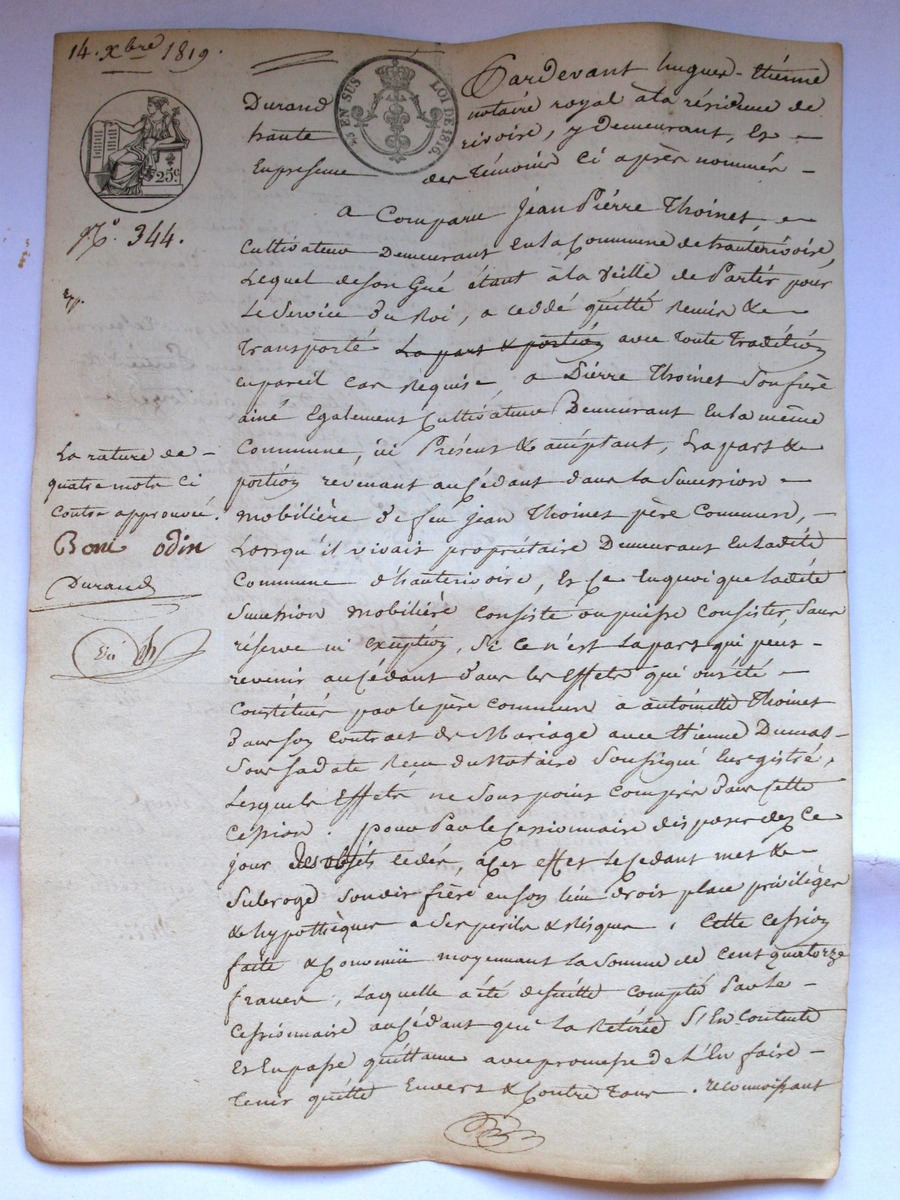 14. xbre 1819.
EN SUS LOI DE 1816.
25c
No. 344.
Pardevant hugues-étienne
Durand notaire royal à la résidence de
haute rivoire, y Demeurant, Et
En presence des témoins ci après nommés
a Comparu jean Piérre Thoinet
Cultivateur Demeurant En la Commune de hauterivoire,
Lequel de son Gré étant à la veille de Partir pour
Le Service du Roi, a ceddé quitté Remis &
transporté La part & portion avec toute tradition
en pareil cas Requise a Piérre Thoinet Son frère
ainé Egalement Cultivateur Demeurant En la même
Commune, ici Présent & acceptant, La part &
portion revenant au Cédant dans la Succession
mobilière de feu jean Thoinet père Commun,
Lorsqu'il vivait propriétaire Demeurant En ladite
Commune d'hauterivoire, Et Ce En quoi que ladite
Succession mobilière consiste ou puisse consister, Sans
réserve ni Exception, Si ce n'est La part qui peut
revenir au Cédant dans les Effets qui ont été
Constitués par le père commun à antoinette Thoinet
dans son contract de Mariage avec étienne Dumas
Sous sa date Recu du Notaire Soussigné Enregistré,
Lesquels Effets ne Sont point Compris dans Cette
Cession. pour Par le Cessionnaire disposer dez Ce
jour des objets cédés, à cet effet Le Cedant met &
Subroge Sondit frère en son lieu droit place privilèges
& hypothèques à Ses perils & risques. Cette Cession
faite & Convenue moyennant La Somme de Cent quatorze
francs, Laquelle a été de suitte compté Par le
Cessionnaire au Cédant qui La Retirée S'En Contente
Et En passe quittance avec promesse de L'En faire
tenir quitte Envers & Contre Tous. reconnoissant
La rature de
quatre mots ci
Contre approuvée.
Boni odin
Durand